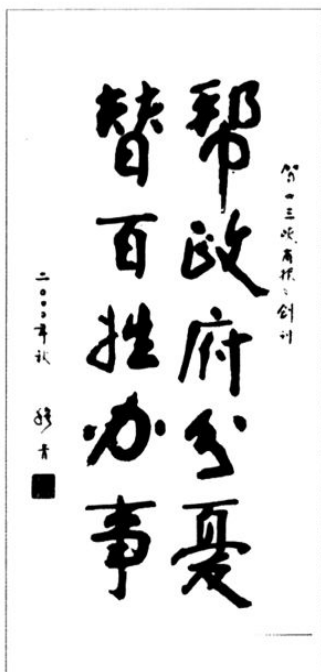 贺《三峡商报》创刊
帮政府分憂
替百姓办事
二〇〇〇年秋 穆青